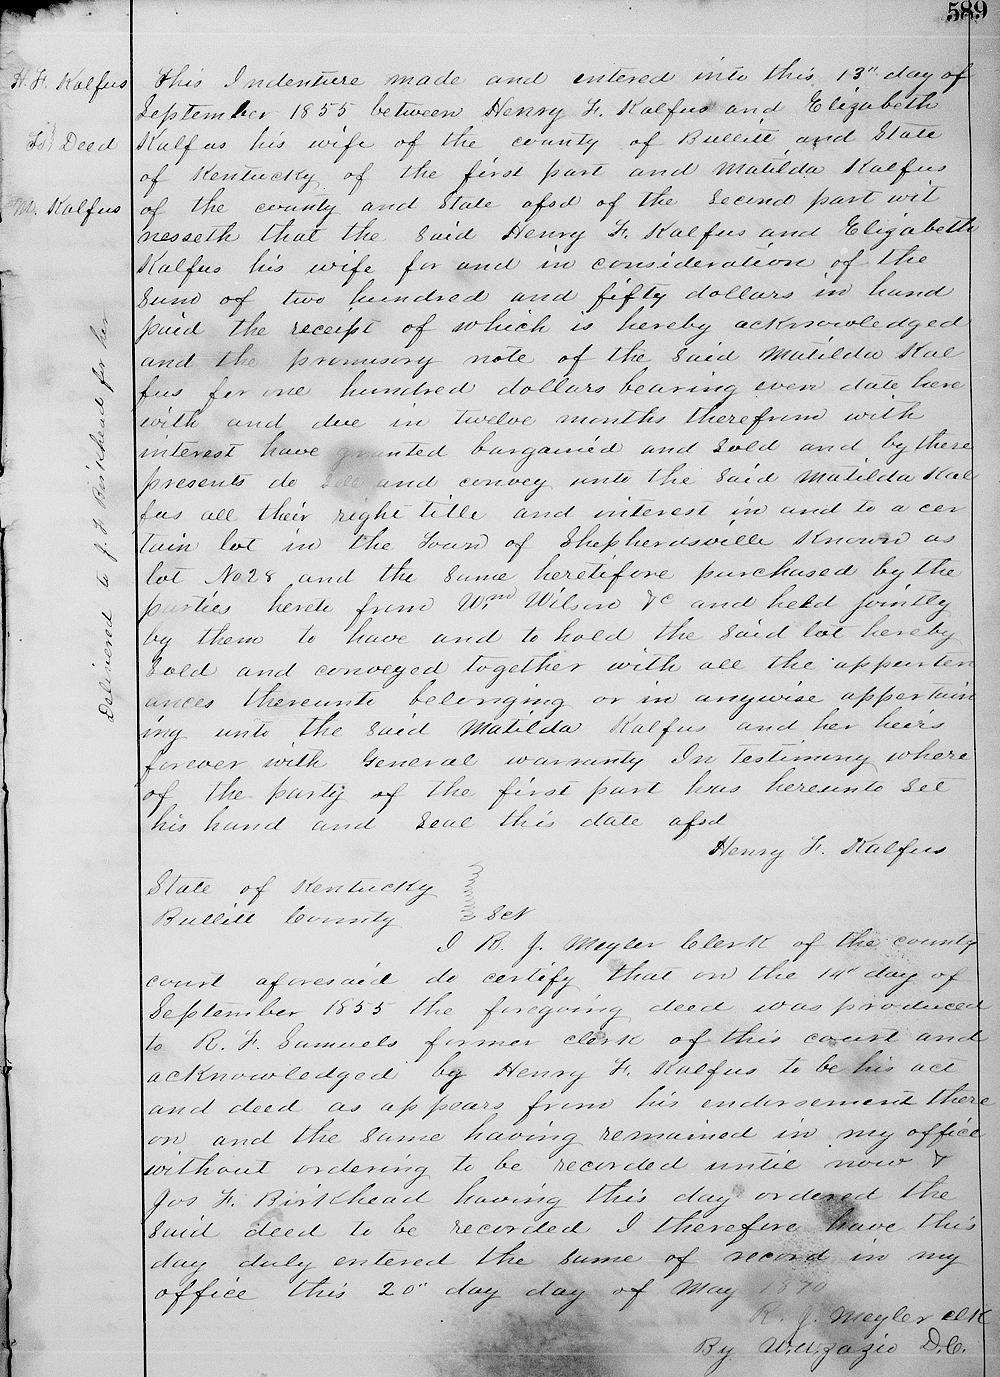 589
H. F. Kalfus
To} Deed
M. Kalfus
Delivered to J. F. Birkhead for her
This Indenture made and entered into this 13" day of
September 1855 between Henry F. Kalfus and Elizabeth
Kalfus his wife of the county of Bullitt and State
of Kentucky of the first part and Matilda Kalfus
of the county and State afsd of the Second part wit
nesseth that the Said Henry F. Kalfus and Elizabeth
Kalfus his wife for and in consideration of the
Sum of two hundred and fifty dollars in hand
paid the receipt of which is hereby acknowledged
and the promisory note of the Said Matilda Kal
fus for one hundred dollars bearing even date here
with and due in twelve months therefrom with
interest have granted bargained and Sold and by these
presents do Sell and convey unto the Said Matilda Kal
fus all their right title and interest in and to a cer
tain lot in the Town of Shepherdsville Known as
lot No 28 and the Same heretofore purchased by the
parties hereto from Wm Wilson &c and held jointly
by them to have and to hold the Said lot hereby
Sold and conveyed together with all the appurten
ances thereunto belonging or in anywise appertain
ing unto the Said Matilda Kalfus and her heirs
forever with General warranty In testimony where
of the party of the first part has hereunto Set
his hand and Seal this date afsd
Henry F. Kalfus
State of Kentucky
Bullitt County } Sct
I R. J. Meyler Clerk of the county
court aforesaid do certify that on the 14" day of
September 1855 the foregoing deed was produced
to R. F. Samuels former clerk of this court and
acknowledged by Henry F. Kalfus to be his act
and deed as appears from his endorsement there
on and the Same having remained in my office
without ordering to be recorded until now &
Jos F. Birkhead having this day ordered the
Said deed to be recorded I therefore have this
day duly entered the Same of record in my
office this 20" day day of May 1870
R. J. Meyler clk
By D.C.